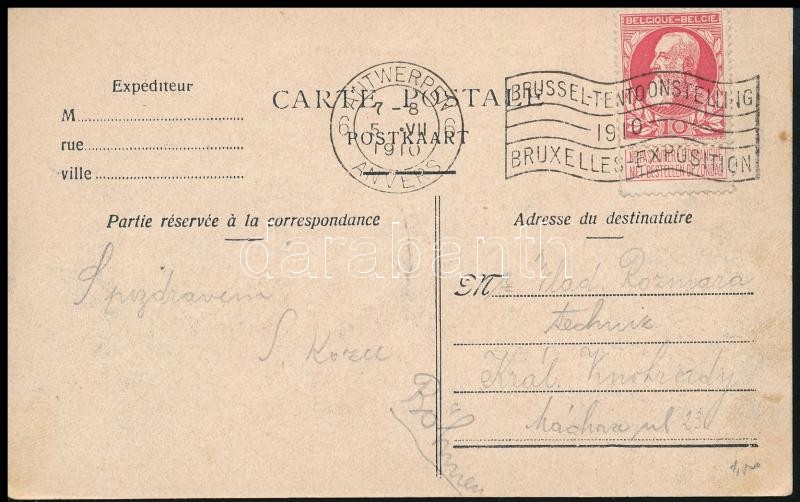 BELGIQUE-BELGIË
Expéditeur
M
rue
ville
CARTE POSTALE
POSTKAART
ANTWERPEN
7-8
6 5 VII 6
1910
ANVERS
BRUSSEL-TENTOONSTELLING
1910
BRUXELLES-EXPOSITION
10
NE PAS LIVRER LE DIMANCHE
NIET BESTELLEN OP ZONDAG
Partie réservée à la correspondance
Adresse du destinataire
S pozdravem
S. Kozel
M Vlad. Rozmara
technik
Král. Vinohrady
Máchova ul 23
Böhmen
darabanth